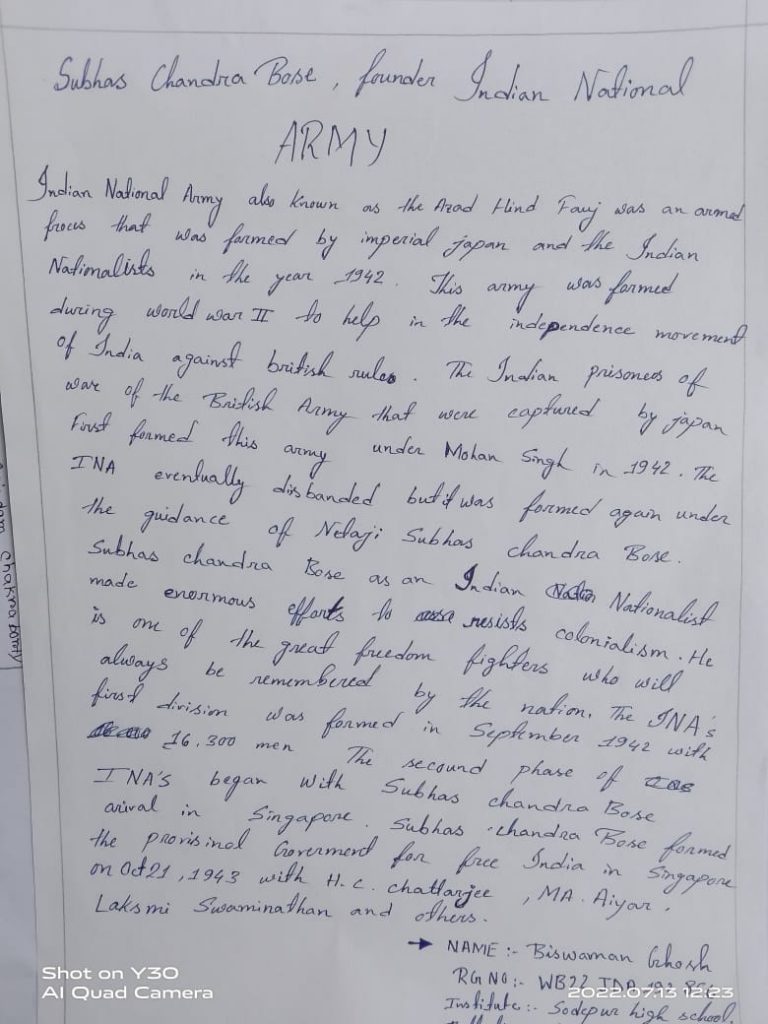 Subhas Chandra Bose, founder Indian National
ARMY
Indian National Army also known as the Azad Hind Fauj was an armed
froces that was formed by imperial japan and the Indian
Nationalists in the year 1942. This army was formed
during world war II to help in the independence movement
of India against british rules. The Indian prisoners of
war of the British Army that were captured by japan
First formed this army under Mohan Singh in 1942. The
INA eventually disbanded but it was formed again under
the guidance of Netaji Subhas chandra Bose.
Subhas chandra Bose as an Indian Nationalist
made enormous efforts to resists colonialism. He
is one of the great freedom fighters who will
always be remembered by the nation. The INA's
first division was formed in September 1942 with
16,300 men The second phase of
INA'S began with Subhas chandra Bose
arival in Singapore. Subhas chandra Bose formed
the provisinal Goverment for free India in Singapore
on Oct 21, 1943 with H.C. chattarjee, MA. Aiyar,
Laksmi Swaminathan and others.
→ NAME :- Biswaman Ghosh
RG NO :- WB22
Institute :- Sodepur high school.
Shot on Y30
AI Quad Camera
2022.07.13 12:23